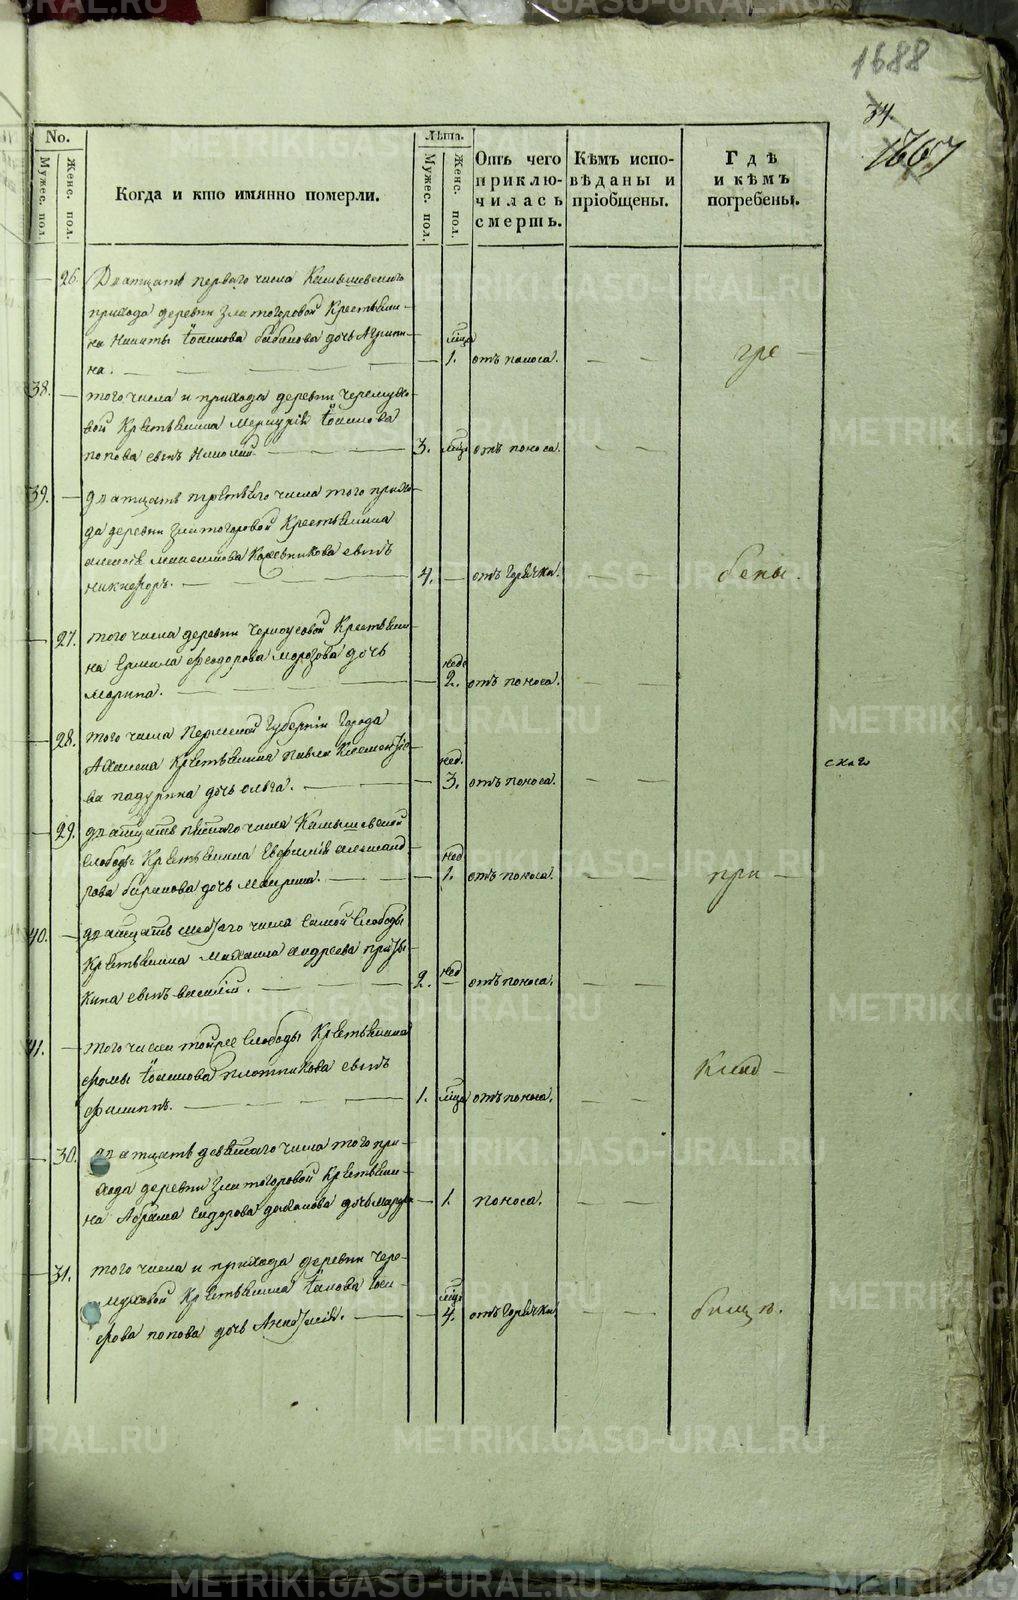 1688
34.
1667
No.
Мужес. пол.
Женс. пол.
Когда и кто имянно померли.
Лѣта.
Мужес. пол.
Женс. пол.
Отъ чего приключилась смерть.
Кѣмъ исповѣданы и пріобщены.
Гдѣ и кѣмъ погребены.
26. Дватцать перваго числа Камышевскаго
прихода деревни Златогоровой Крестьяни-
на Никиты Іосифова бабинова дочь Агрипи-
на. мѣца 1. отъ поноса.
гре-
38. того числа и прихода деревни Черемухо-
вой Крестьянина Меркурія Іосифова
попова сынъ Николай. 3. мѣца отъ поноса.
39. дватцать третьяго числа того прихо-
да деревни Златогоровой Крестьянина
алексѣя Кожевникова сынъ
никифоръ. 4. отъ горячки.
бены.
27. того числа деревни Черноусовой Крестьяни-
на Ермила Феодорова Морозова дочь
Марина. неде 2. отъ поноса.
28. того числа Пермской Губерніи Города
Крестьянина Павла
ва падурина дочь ольга. нед. 3. отъ поноса.
скаго
29. дватцать пятаго числа Камышевской
Слободы Крестьянина Евфимія александ
рова баранова дочь Марина. нед 1. отъ поноса.
при-
40. дватцать седьмаго числа самой Слободы
Крестьянина Михаила андреева
кина сынъ василій. 2. нед отъ поноса.
41. того числа той же Слободы Крестьянина
фомы Іосифова плотникова сынъ
филиппъ. 1. мѣца отъ поноса.
Клад-
30. дватцать девятаго числа того при-
хода деревни Златогоровой Крестьяни-
на Абрама Сидорова дочь 1. поноса.
31. того числа и прихода деревни Чере-
муховой Крестьянина Іакова Іоси-
фова попова дочь мѣц. 4. отъ горячки.
бищѣ.
METRIKI.GASO-URAL.RU